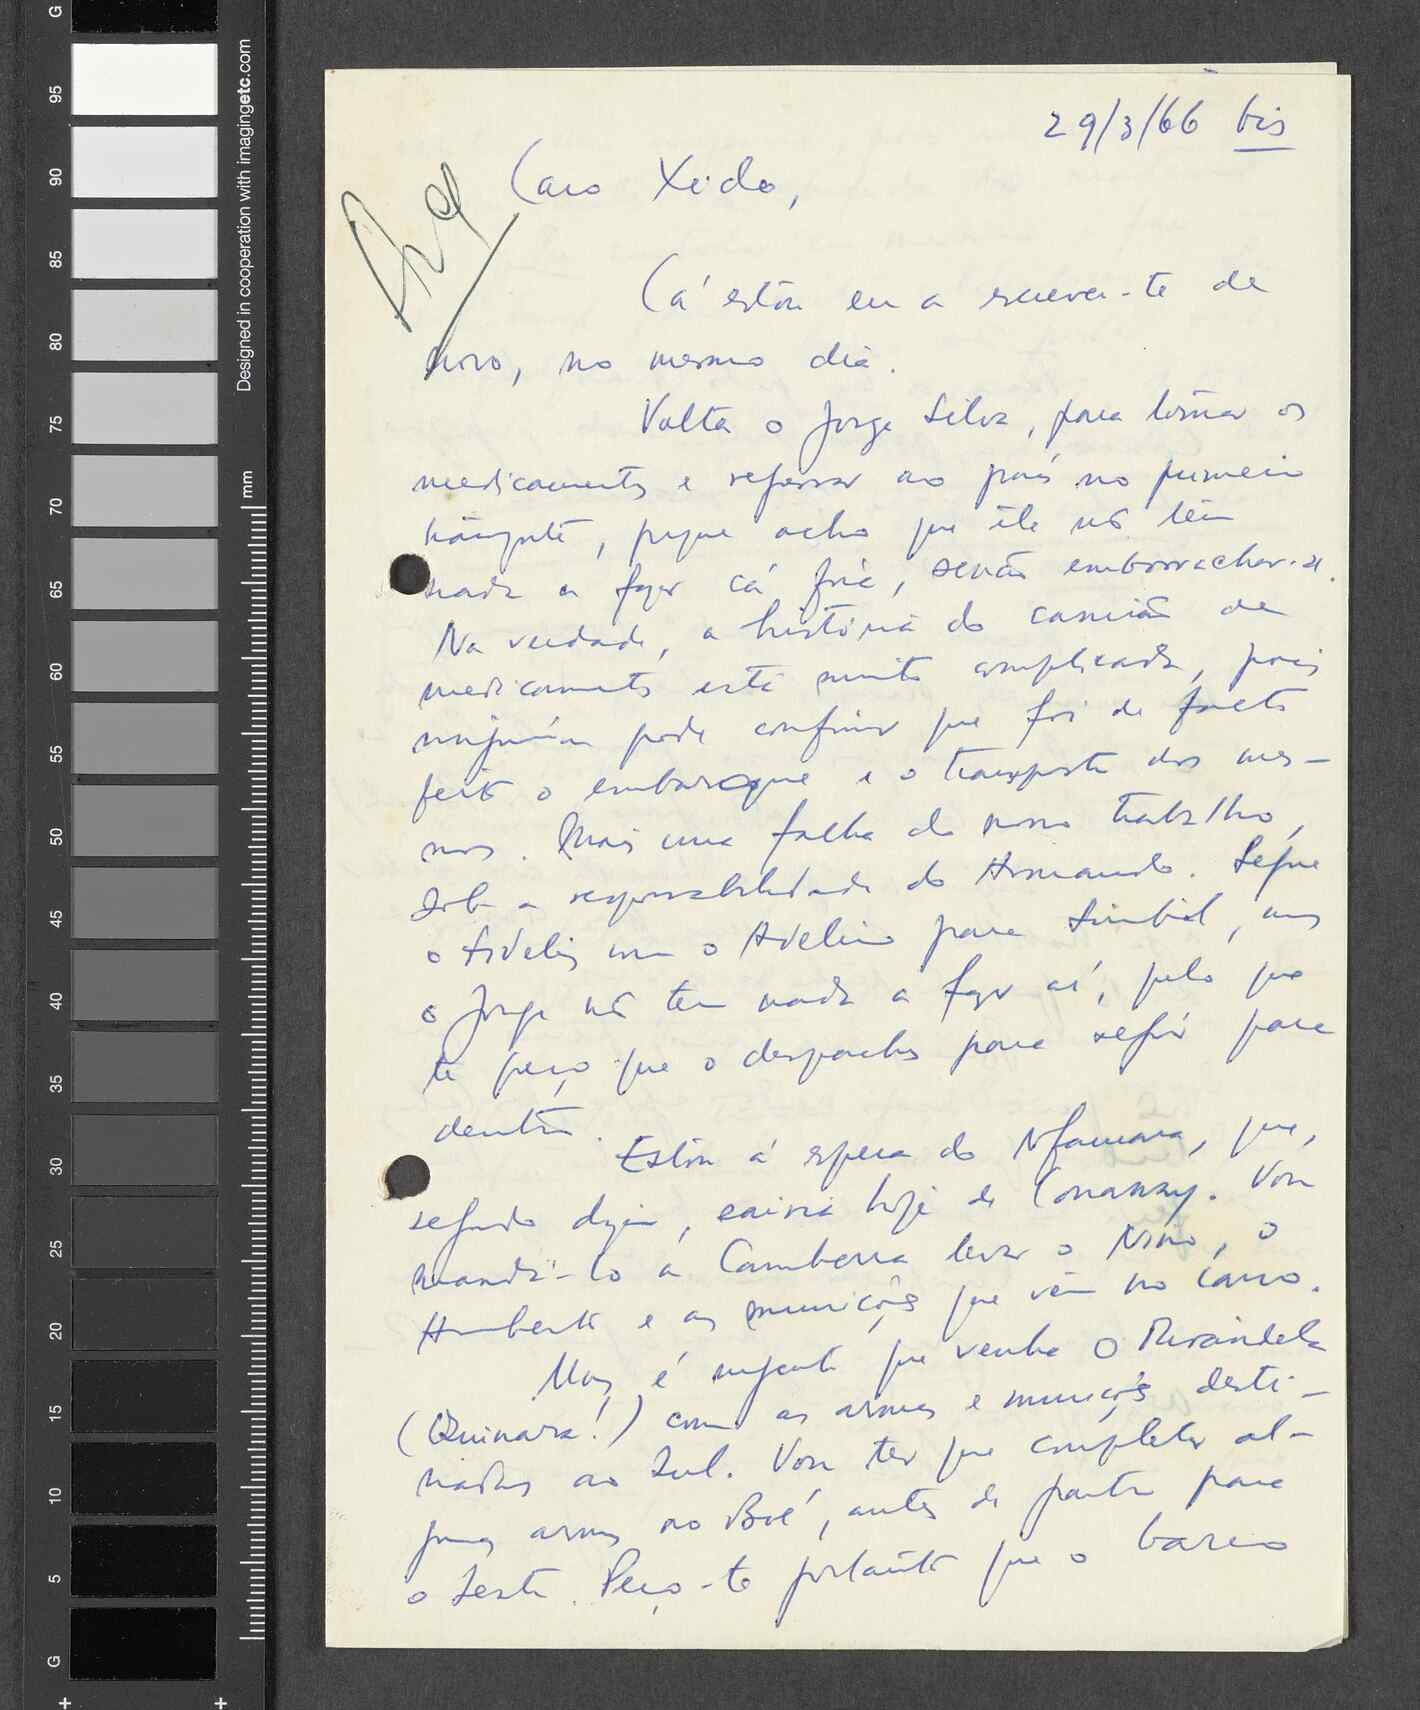 29/3/66 bis
Arq
Caro Xido,
Cá estou eu a escrever-te de
novo, no mesmo dia.
Volta o Jorge Silva, para tomar os
medicamentos e regressar ao país no primeiro
transporte, porque acho que ele não tem
nada a fazer cá fora, senão emborrachar-se.
Na verdade, a história do camião de
medicamentos está muito complicada, pois
ninguém pode confirmar que foi de facto
feito o embarque e o transporte dos mes-
mos. Mais uma falha do nosso trabalho,
sob a responsabilidade do Armando. Segue
o Fidelis com o Adelino para Simbel, mas
o Jorge não tem nada a fazer aí, pelo que
te peço que o despaches para seguir para
dentro.
Estou à espera do Nfamara, que,
segundo dizem, sairia hoje de Conakry. Vou
mandá-lo a Camberra levar o Nino, o
Humberto e as munições que vêm no carro.
Mas é urgente que venha o Mirandela
(Quinara!) com as armas e munições desti-
nadas ao Sul. Vou ter que completar al-
gumas armas no Boé, antes de partir para
o Leste. Peço-te portanto que o barco
Designed in cooperation with imagingetc.com
mm
G
95
90
85
80
75
70
65
60
55
50
45
40
35
30
25
20
15
10
5
G